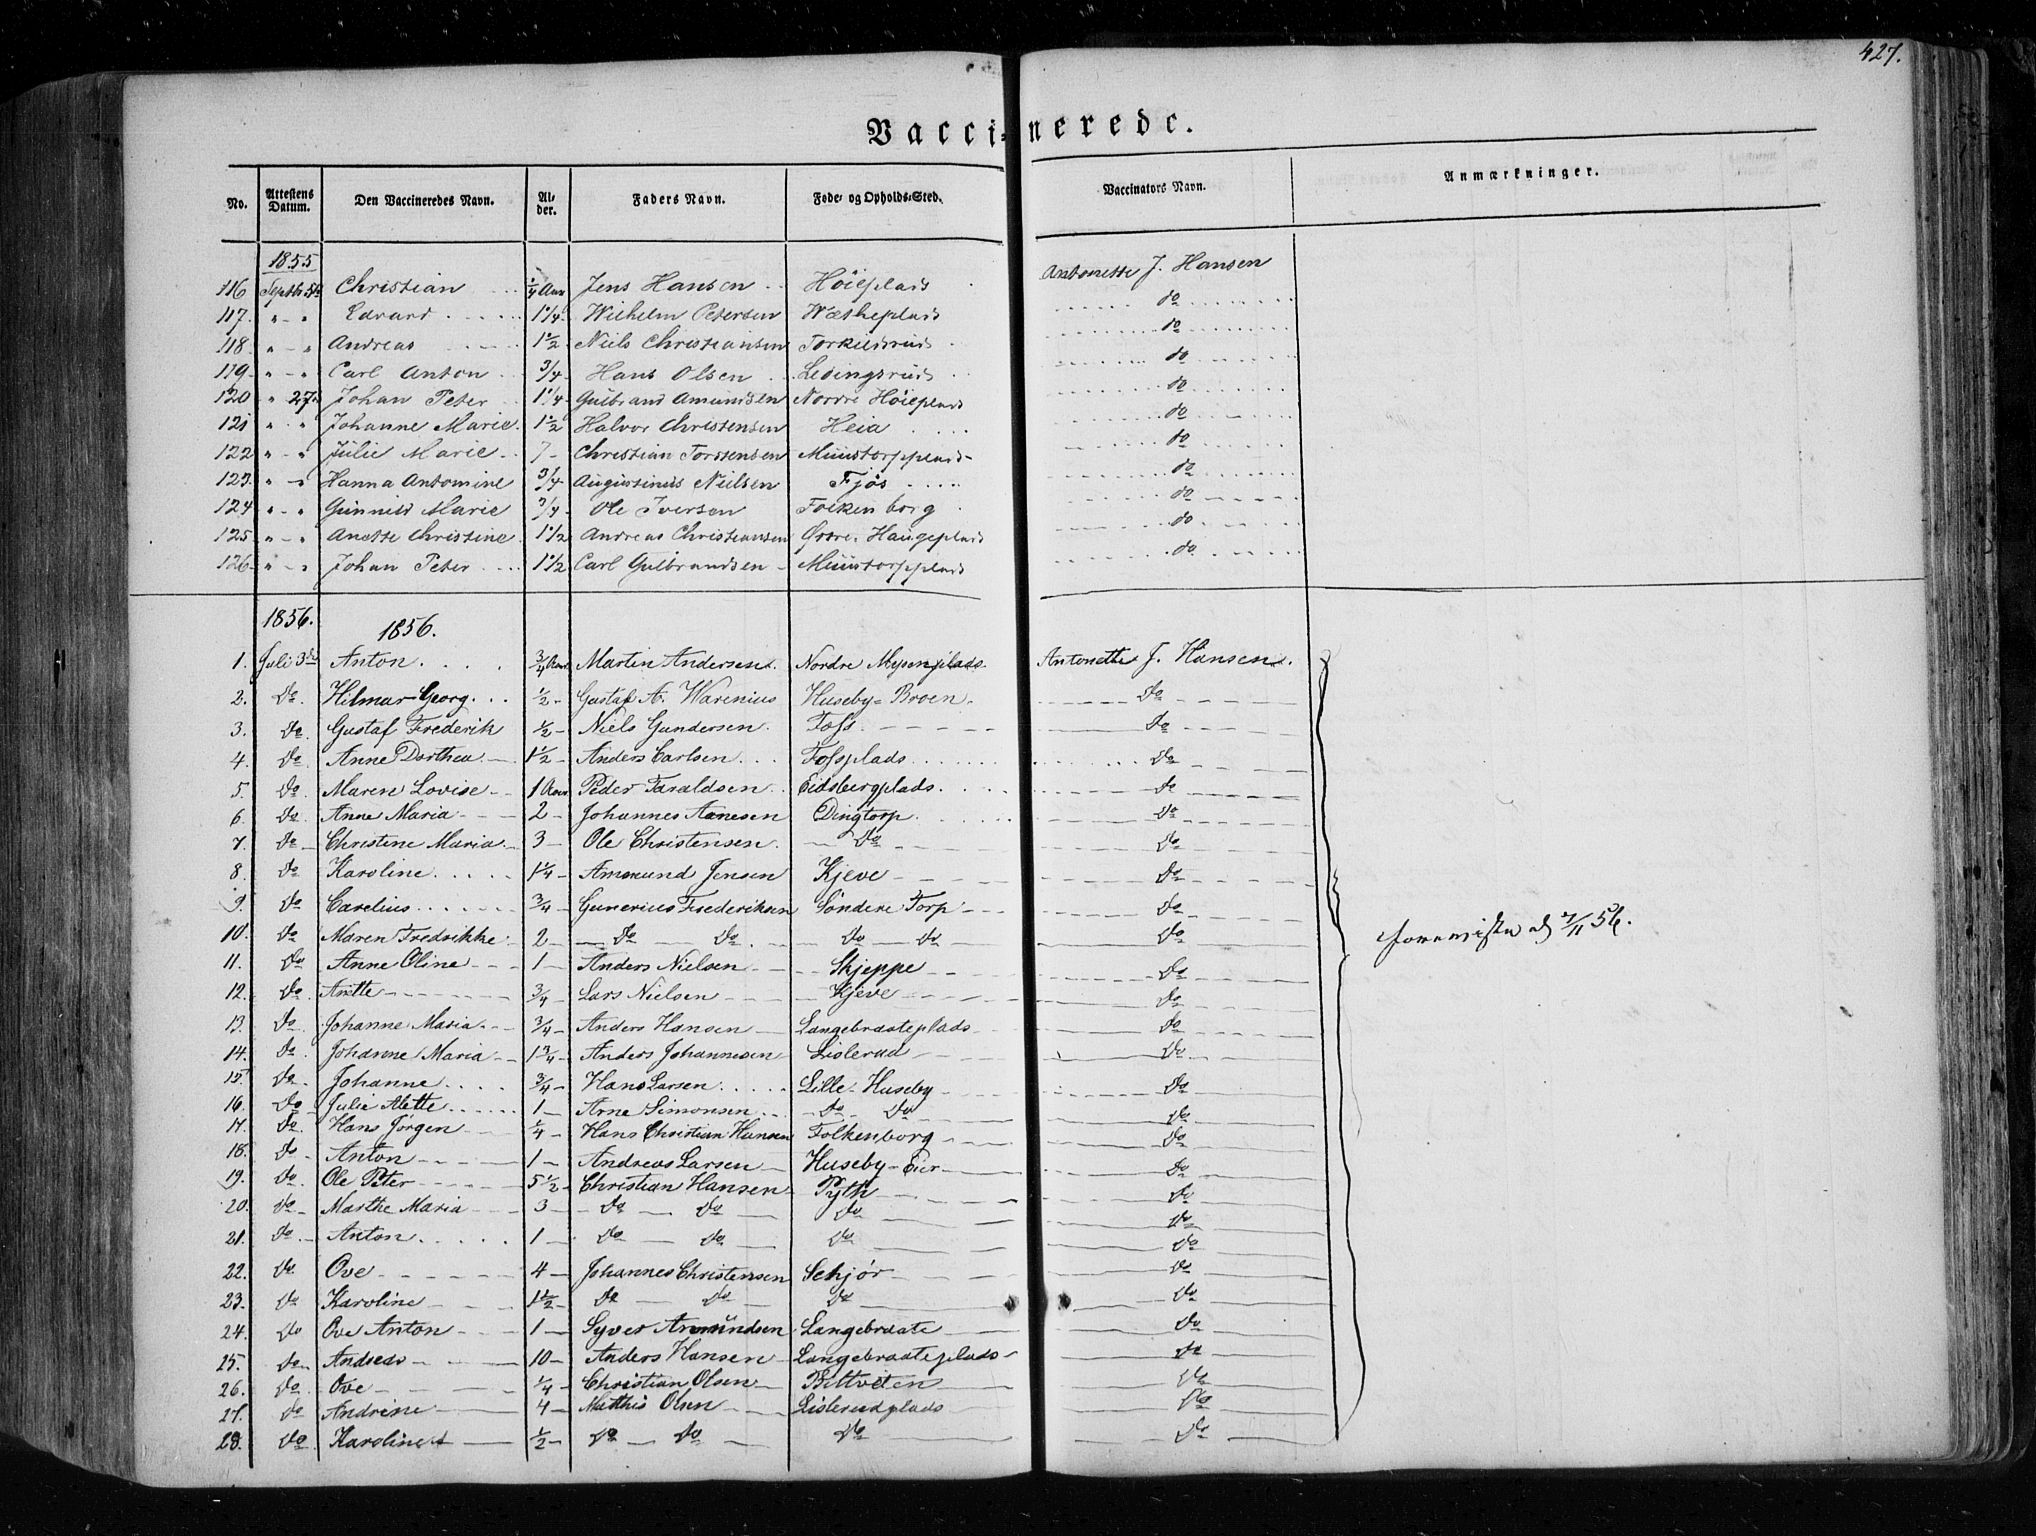 427.
Vaccinerede.
No. Attestens Datum. Den Vaccineredes Navn. Alder. Faders Navn. Føde- og Opholds-Sted. Vaccinators Navn. Anmærkninger.
1855
116 Septbr 5te Christian 1/4 Aar Jens Hansen Høieplads Antonette J. Hansen
117. " - " Edvard 1 1/4 Wilhelm Petersen Wætheplads do
118 " - " Andreas 1 1/2 Niels Christiansen Torkilsrud do
119 " - " Carl Anton 3/4 Hans Olsen Ledingsrud do
120 " 27 Johan Peter 1 1/4 Gulbrand Amundsen Nordre Høieplads do
121 " - " Johanne Marie 1 1/2 Halvor Christensen Heia do
122 " - " Julie Marie 7 - Christian Torstensen Muustorpplads do
123. " - " Hanna Antomine 3/4 Augustinus Nielsen Fjøs do
124 " - " Gunnild Marie 3/4 Ole Iversen Folkenborg do
125 " - " Anette Christine 1 1/2 Andreas Christiansen Østre Haugeplads do
126 " - " Johan Peter 1 1/2 Carl Gulbrandsen Muustorpplads do
1856. 1856.
1. Juli 3die Anton 3/4 Aar Martin Andersen Nordre Mysenplads Antonette J. Hansen.
2. Do Hilmar Georg 1/2 - Gustaf A. Warenius Huseby-Broen Do
3. Do Gustaf Frederik 1/2 - Niels Gundersen Foss Do
4. Do Anne Dorthea 1 1/2 - Anders Carlsen Fossplads Do
5. Do Maren Lovise 1 Aar Peder Taraldsen Eidsbergplads Do
6. Do Anne Maria 2 - Johannes Aanesen Dingtorp Do
7. Do Christine Maria 3 - Ole Christensen Do Do
8. Do Karoline 1 1/4 - Amund Jensen Kjeve Do
9. Do Carelius 3/4 - Gunerius Frederiksen Søndere Torp Do
10. Do Maren Fredrikke 2 - Do Do Do Do Do
11. Do Anne Oline 1 - Anders Nielsen Skjeppe Do
12. Do Anette 3/4 - Lars Nielsen Kjeve Do
13. Do Johanne Maria 3/4 - Anders Hansen Langebraateplads Do
14. Do Johanne Maria 1 3/4 - Anders Johannesen Lislerud Do
15. Do Johanne 3/4 - Hans Larsen Lille-Huseby Do
16. Do Julie Alette 1 - Arne Simonsen Do Do Do
17. Do Hans Jørgen 1/4 - Hans Christian Hansen Folkenborg Do
18. Do Anton 1 - Andreas Larsen Huseby-Eier Do
19. Do Ole Peter 5 1/2 - Christian Hansen Pyth Do
20. Do Marthe Maria 3 - Do Do Do Do
21. Do Anton 1 - Do Do Do Do
22. Do Ove 4 - Johannes Christensen Schjør Do
23. Do Karoline 1 1/2 - Do Do Do Do
24. Do Ove Anton 1 - Syver Amundsen Langebraate Do
25. Do Andreas 10 - Anders Hansen Langebraateplads Do
26. Do Ove 1/4 - Christian Olsen Bittveten Do
27. Do Andrine 4 - Mathis Olsen Lislerudplads Do
28. Do Karoline 1/2 - Do Do Do Do
7/11 56.